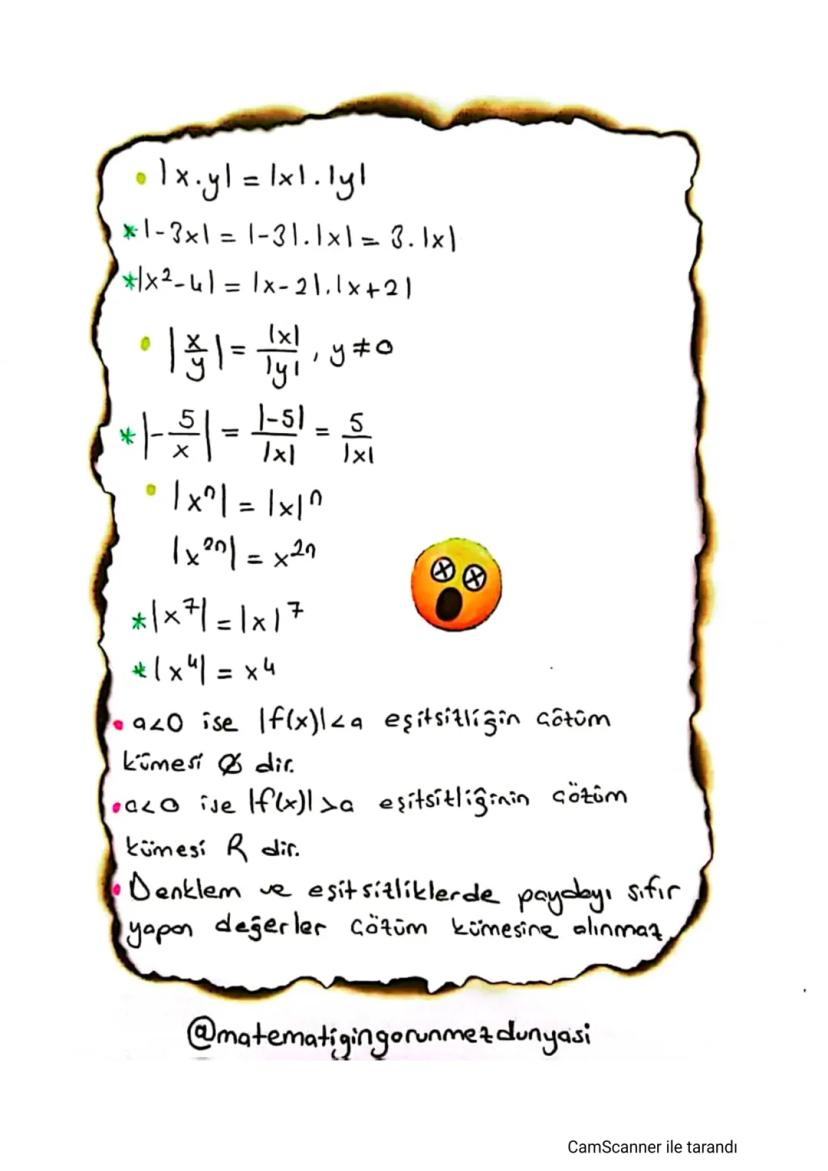 • |x.y| = |x|.|y|
* |-3x| = |-3|.|x| = 3.|x|
* |x²-4| = |x-2|.|x+2|
• |x/y| = |x|/|y| , y≠0
* |-5/x| = |-5|/|x| = 5/|x|
• |xⁿ| = |x|ⁿ
|x²ⁿ| = x²ⁿ
* |x⁷| = |x|⁷
* |x⁴| = x⁴
• a<0 ise |f(x)|<a eşitsizliğin çözüm
kümesi Ø dir.
• a<0 ise |f(x)|>a eşitsizliğinin çözüm
kümesi R dir.
• Denklem ve eşitsizliklerde paydayı sıfır
yapan değerler çözüm kümesine alınmaz.
@matematigingorunmezdunyasi
CamScanner ile tarandı